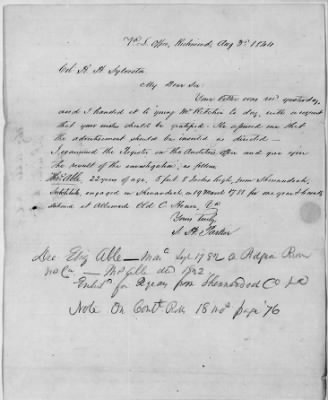 Va L. Office, Richmond, Aug 3d 1844
Col. H. H. Sylvester
My Dear Sir
Your letter was recd yesterday,
and I handed it to young Mr Ritchie to day, with a request
that your wishes should be gratified. He assured me that
the advertisement should be inserted as directed —
I examined the Register in the Auditors office and give you
the result of the investigation, as follows
Thos Able, 22 years of age, 5 feet 8 inches high, from Shenandoah,
engaged in Shenandoah on 19 March 1781 for
at Albemarle Old C. House, Va
Yours truly
S. H. Parker
Dec Eliz Able — Mar Sept 1782
— Mr Able dd
for from Shenandoah Co
Note On Contl Rolls 18 mos page 76